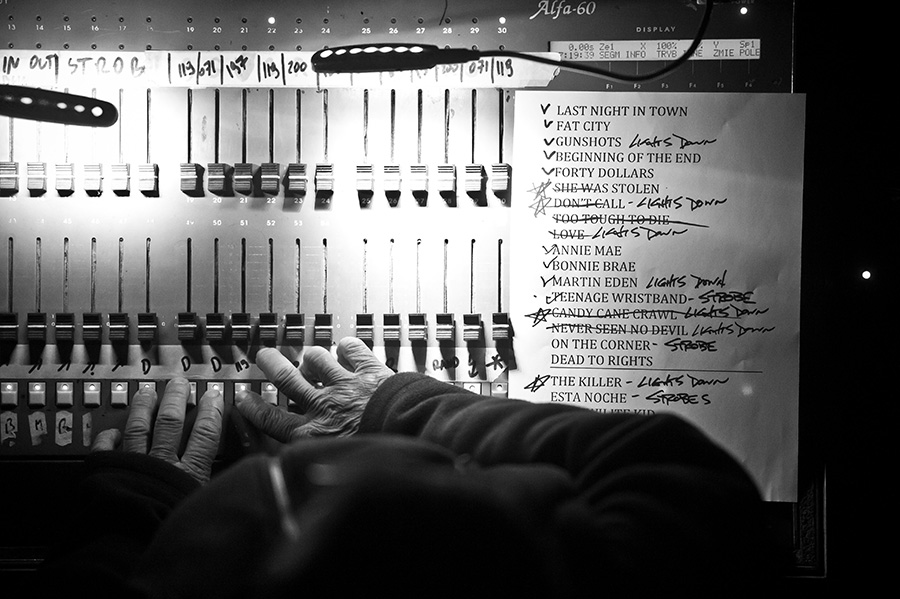 Alfa-60
DISPLAY
0.00s Ze1 X 100% Y Sp1
7:19:39 SEGM INFO TRYB NE ZMIE POLE
13 14 15 16 17 18 19 20 21 22 23 24 25 26 27 28 29 30
IN OUT STROB 119/071 119/200 071/119
LAST NIGHT IN TOWN
FAT CITY
GUNSHOTS LIGHTS DOWN
BEGINNING OF THE END
FORTY DOLLARS
SHE WAS STOLEN
DON'T CALL - LIGHTS DOWN
TOO TOUGH TO DIE
LOVE LIGHTS DOWN
ANNIE MAE
BONNIE BRAE
MARTIN EDEN LIGHTS DOWN
TEENAGE WRISTBAND - STROBE
CANDY CANE CRAWL LIGHTS DOWN
NEVER SEEN NO DEVIL LIGHTS DOWN
ON THE CORNER - STROBE
DEAD TO RIGHTS
THE KILLER - LIGHTS DOWN
ESTA NOCHE - STROBES
D D D 119
B M